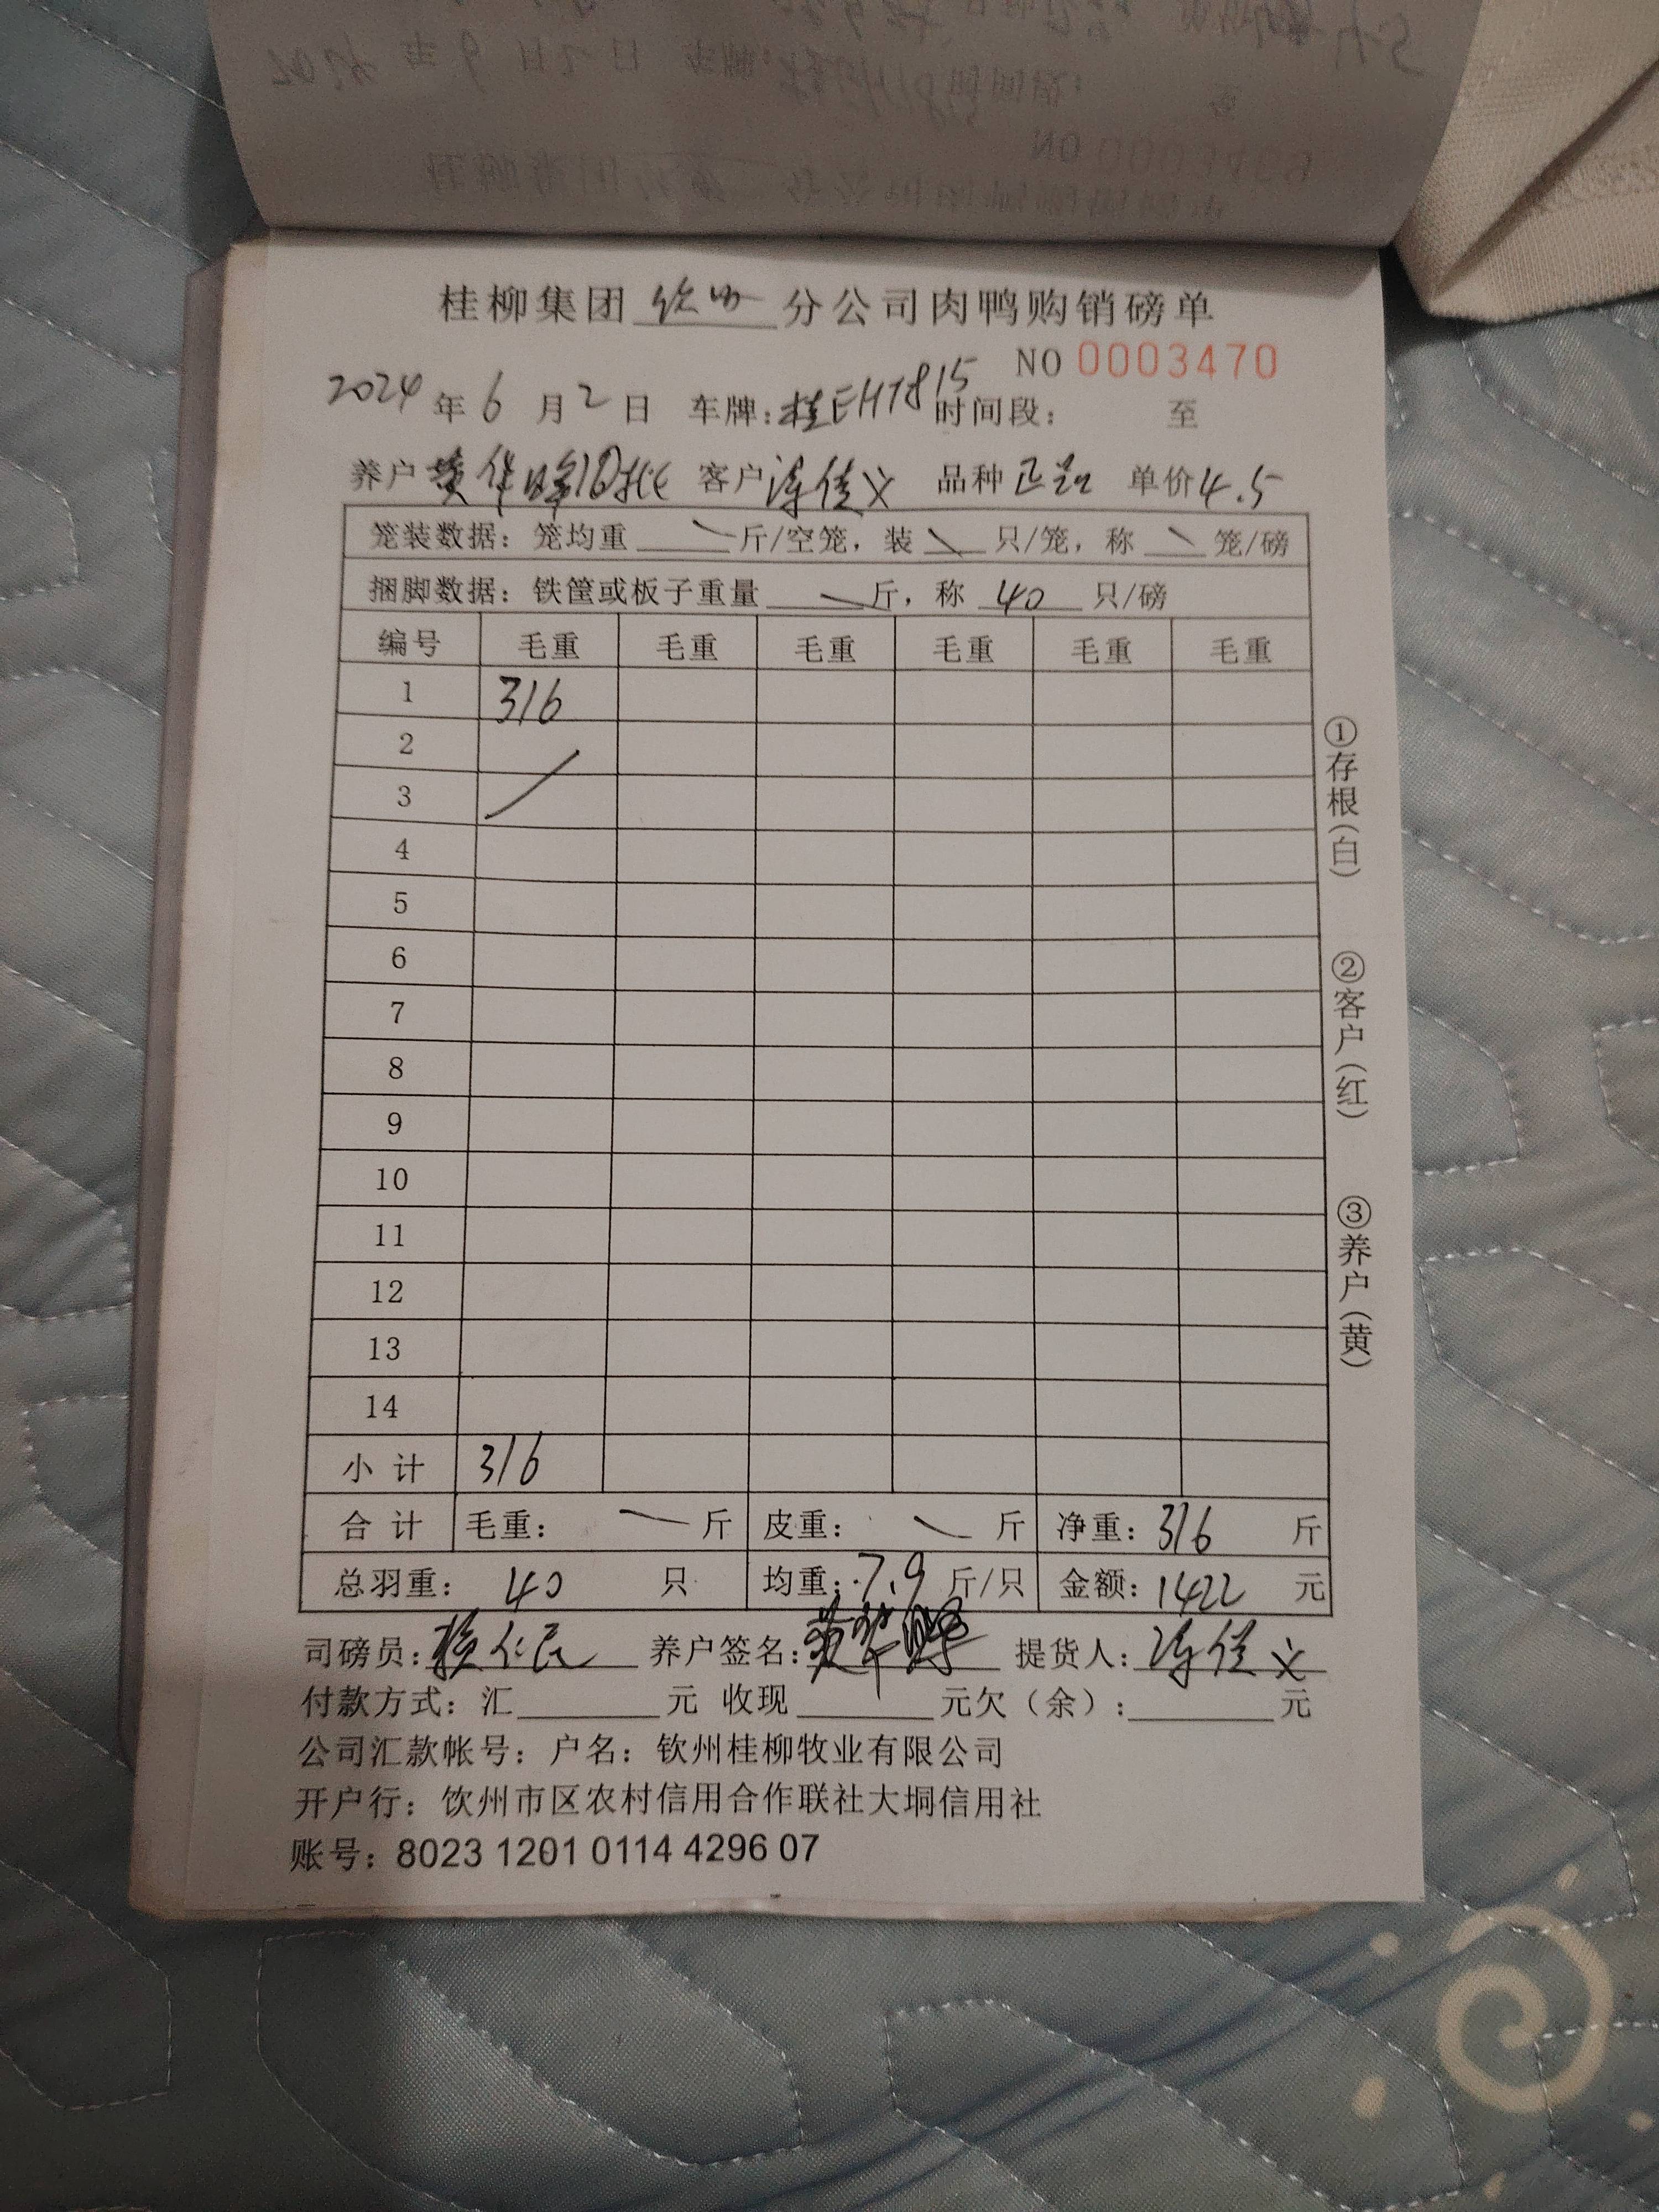 桂柳集团 钦州 分公司肉鸭购销磅单
NO 0003470
2024 年 6 月 2 日 车牌：桂EHT815 时间段： 至
养户 黄华 10批 客户 佳义 品种 正 单价 4.5
笼装数据：笼均重 斤/空笼，装 只/笼，称 笼/磅
捆脚数据：铁筐或板子重量 斤，称 40 只/磅
编号 毛重 毛重 毛重 毛重 毛重 毛重
1 316
2
3
4
5
6
7
8
9
10
11
12
13
14
小 计 316
合 计 毛重： 斤 皮重： 斤 净重：316 斤
总羽重： 40 只 均重：7.9 斤/只 金额：1422 元
司磅员： 仁民 养户签名：黄华 提货人： 佳义
付款方式：汇 元 收现 元欠（余）： 元
公司汇款帐号：户名：钦州桂柳牧业有限公司
开户行：饮州市区农村信用合作联社大垌信用社
账号：8023 1201 0114 4296 07
①存根（白）
②客户（红）
③养户（黄）